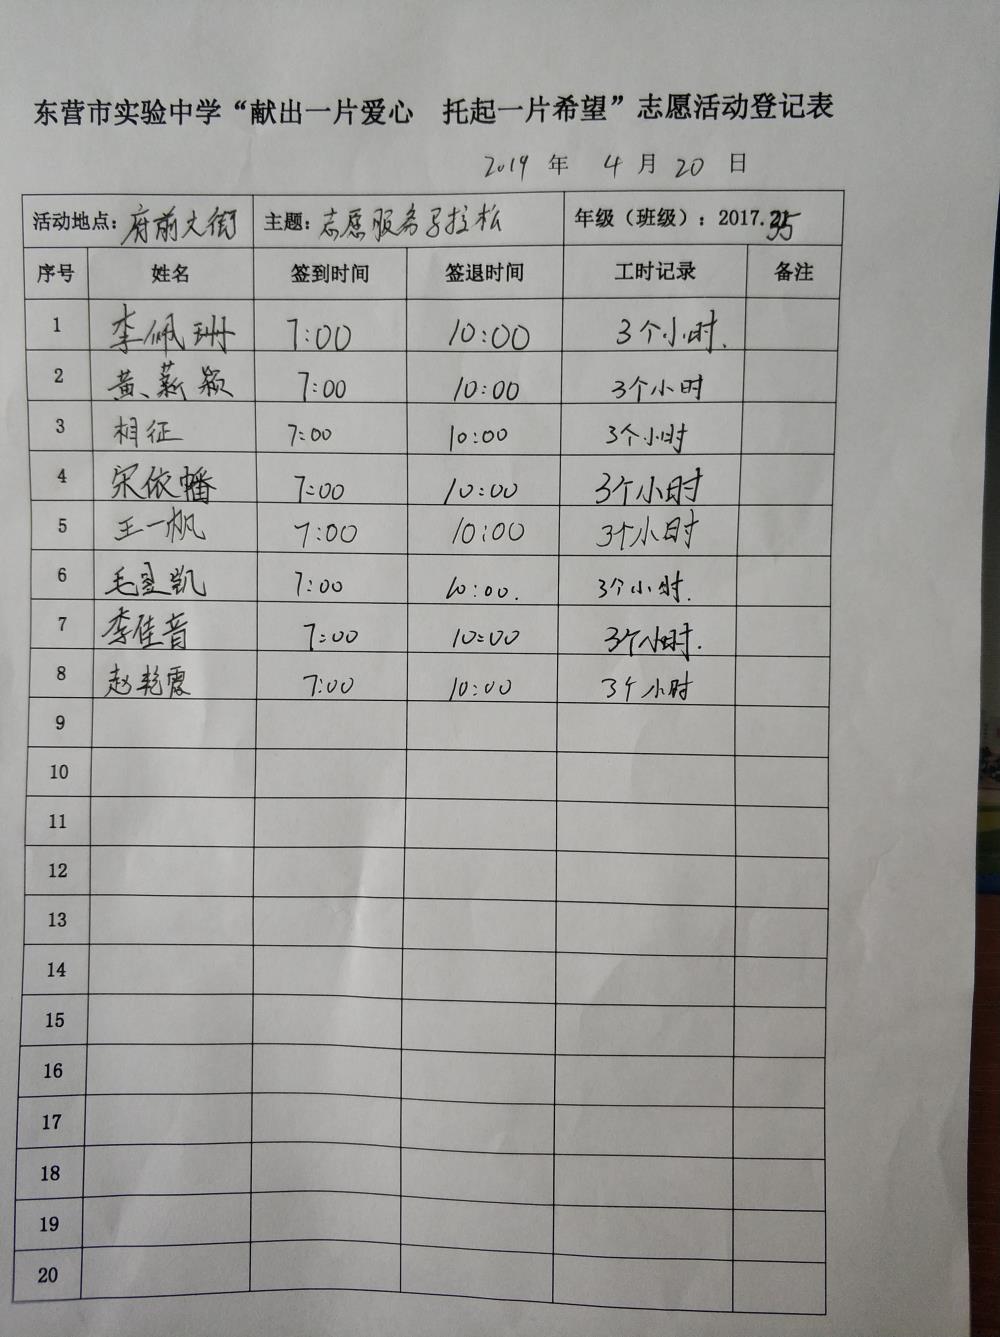 东营市实验中学“献出一片爱心 托起一片希望”志愿活动登记表
2019 年 4 月 20 日
活动地点：府前大街 主题：志愿服务马拉松 年级（班级）：2017.35
序号 姓名 签到时间 签退时间 工时记录 备注
1 李佩珊 7:00 10:00 3个小时.
2 黄薪颖 7:00 10:00 3个小时
3 相征 7:00 10:00 3个小时
4 宋依幡 7:00 10:00 3个小时
5 王一帆 7:00 10:00 3个小时
6 毛昱凯 7:00 10:00. 3个小时.
7 李佳音 7:00 10:00 3个小时.
8 赵乾震 7:00 10:00 3个小时
9
10
11
12
13
14
15
16
17
18
19
20